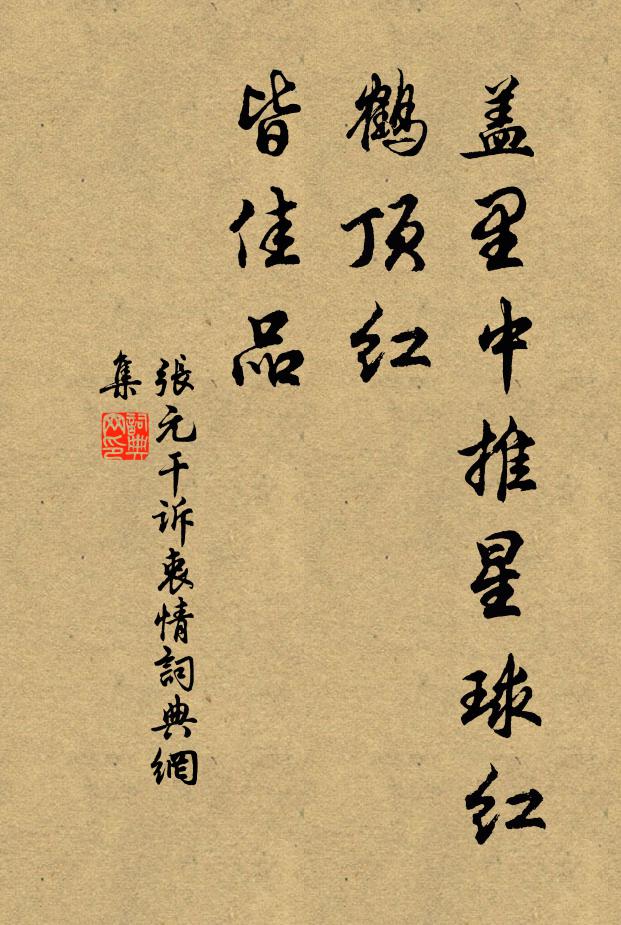 盖里中推星球红
鹤顶红
皆佳品
張元干诉衷情詞典網
集
詞典网印